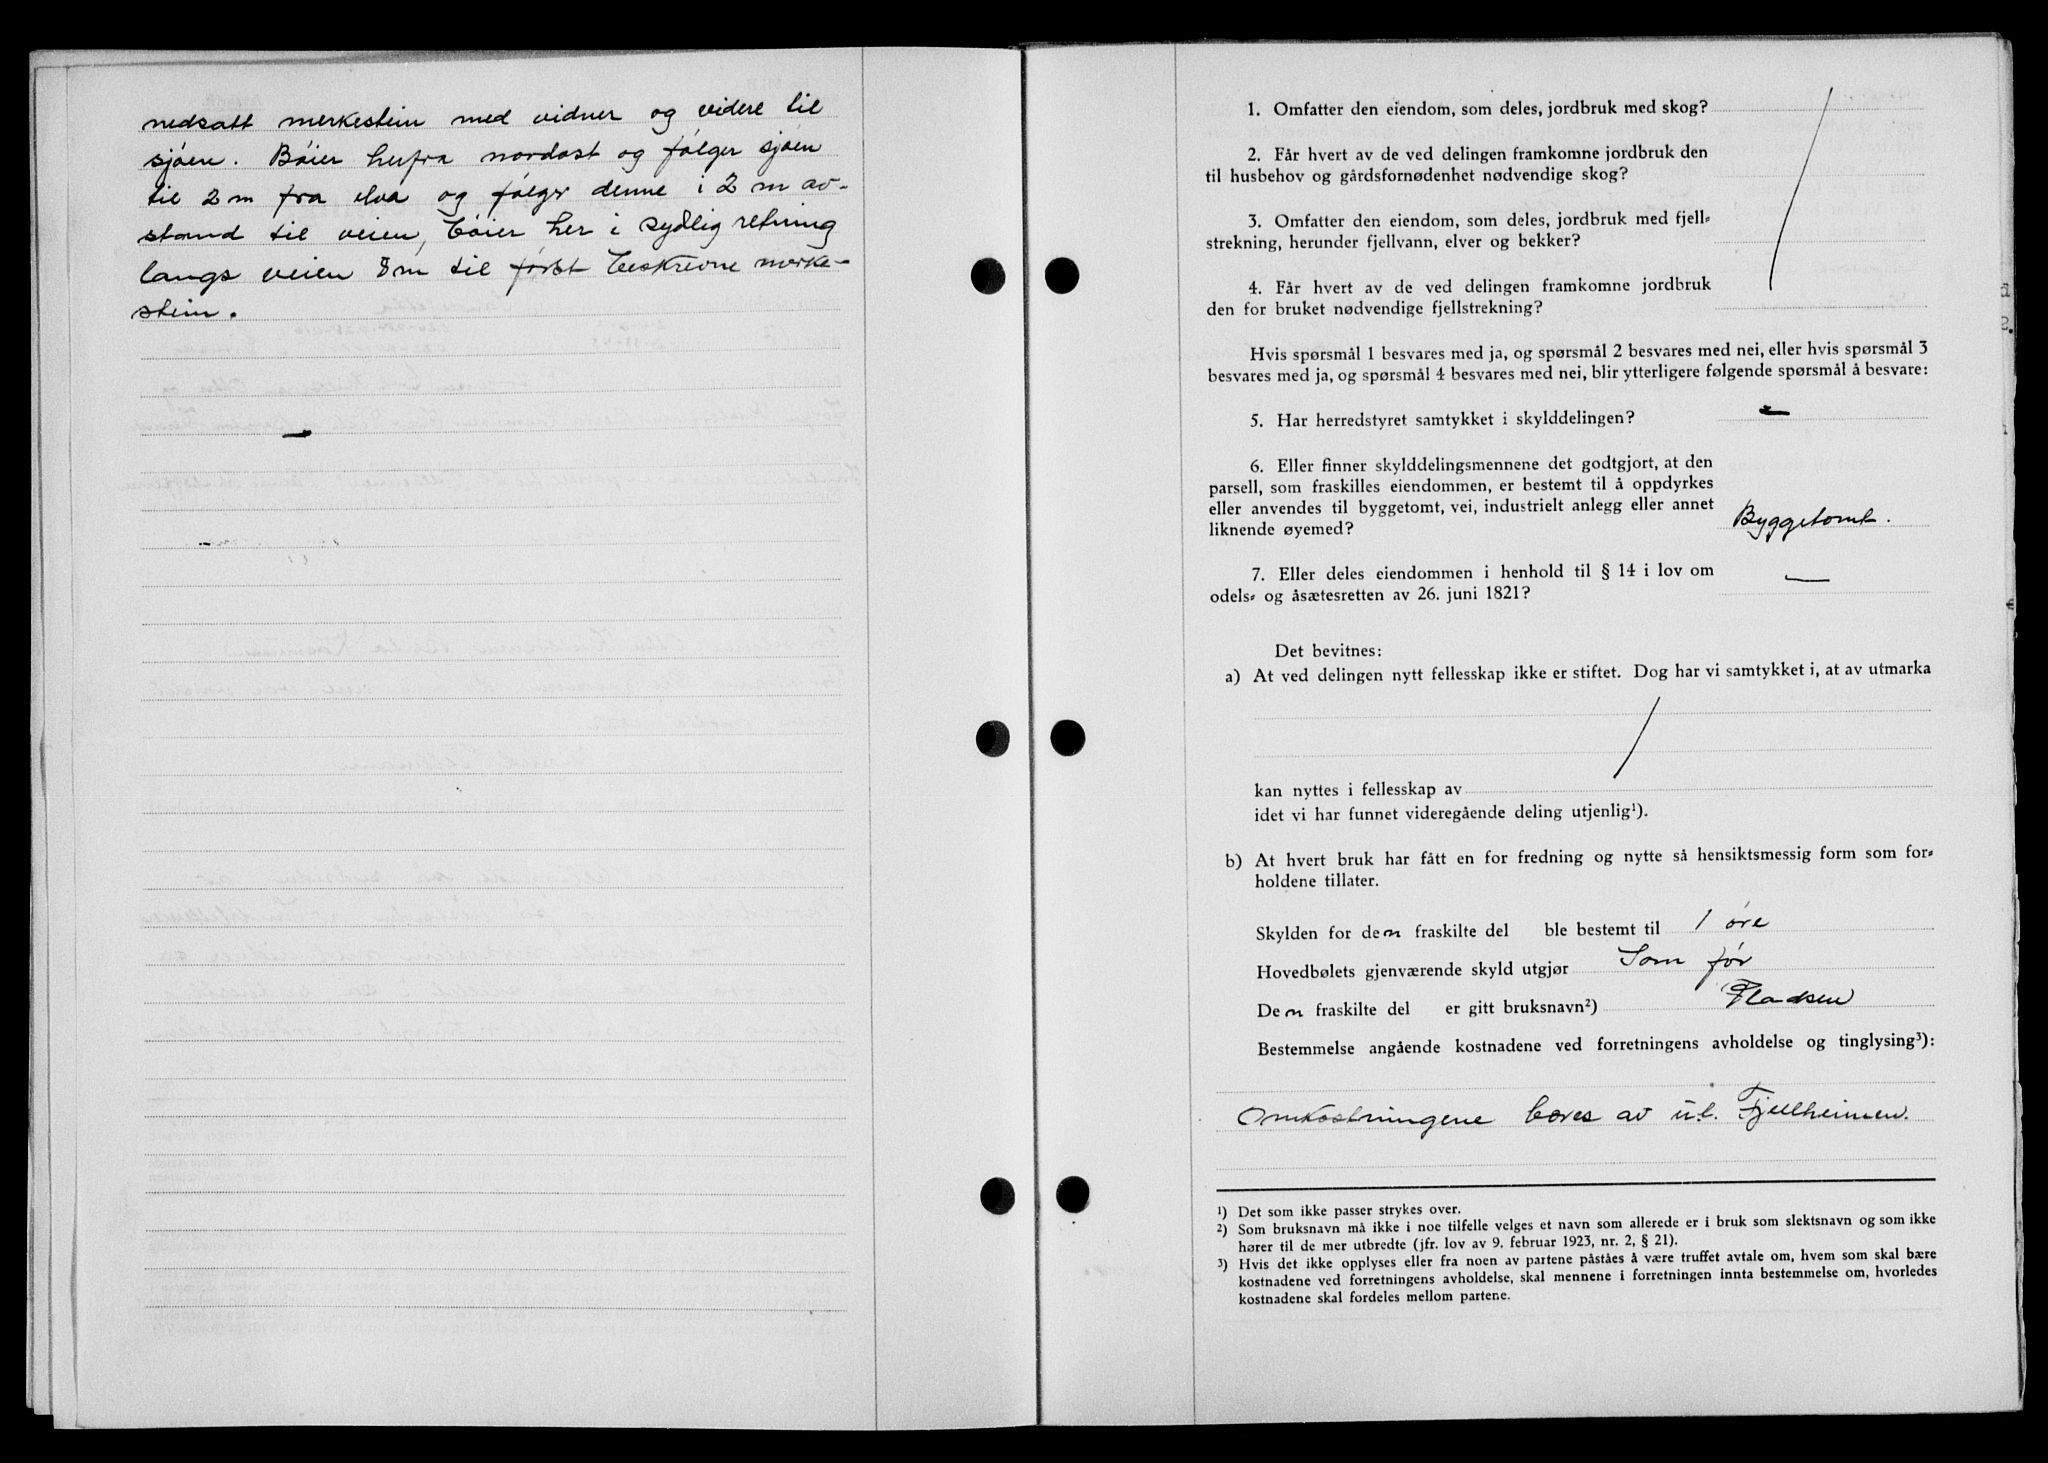 nedsatt merkestein med vidner og videre til
sjøen. Bøier herfra nordost og følger sjøen
til 2 m fra elva og følger denne i 2 m av-
stand til veien, bøier her i sydlig retning
langs veien 8 m til først beskrevne merke-
stein.
1. Omfatter den eiendom, som deles, jordbruk med skog?
2. Får hvert av de ved delingen framkomne jordbruk den
til husbehov og gårdsfornødenhet nødvendige skog?
3. Omfatter den eiendom, som deles, jordbruk med fjell-
strekning, herunder fjellvann, elver og bekker?
4. Får hvert av de ved delingen framkomne jordbruk
den for bruket nødvendige fjellstrekning?
Hvis spørsmål 1 besvares med ja, og spørsmål 2 besvares med nei, eller hvis spørsmål 3
besvares med ja, og spørsmål 4 besvares med nei, blir ytterligere følgende spørsmål å besvare:
5. Har herredstyret samtykket i skylddelingen? —
6. Eller finner skylddelingsmennene det godtgjort, at den
parsell, som fraskilles eiendommen, er bestemt til å oppdyrkes
eller anvendes til byggetomt, vei, industrielt anlegg eller annet
liknende øyemed? Byggetomt.
7. Eller deles eiendommen i henhold til § 14 i lov om
odels- og åsætesretten av 26. juni 1821? —
Det bevitnes:
a) At ved delingen nytt fellesskap ikke er stiftet. Dog har vi samtykket i, at av utmarka
kan nyttes i fellesskap av
idet vi har funnet videregående deling utjenlig¹).
b) At hvert bruk har fått en for fredning og nytte så hensiktsmessig form som for-
holdene tillater.
Skylden for den fraskilte del ble bestemt til 1 øre
Hovedbølets gjenværende skyld utgjør Som før
Den fraskilte del er gitt bruksnavn²) Pladsen
Bestemmelse angående kostnadene ved forretningens avholdelse og tinglysing³):
Omkostningene bæres av u.l. Fjellheimen.
¹) Det som ikke passer strykes over.
²) Som bruksnavn må ikke i noe tilfelle velges et navn som allerede er i bruk som slektsnavn og som ikke
hører til de mer utbredte (jfr. lov av 9. februar 1923, nr. 2, § 21).
³) Hvis det ikke opplyses eller fra noen av partene påståes å være truffet avtale om, hvem som skal bære
kostnadene ved forretningens avholdelse, skal mennene i forretningen innta bestemmelse om, hvorledes
kostnadene skal fordeles mellom partene.